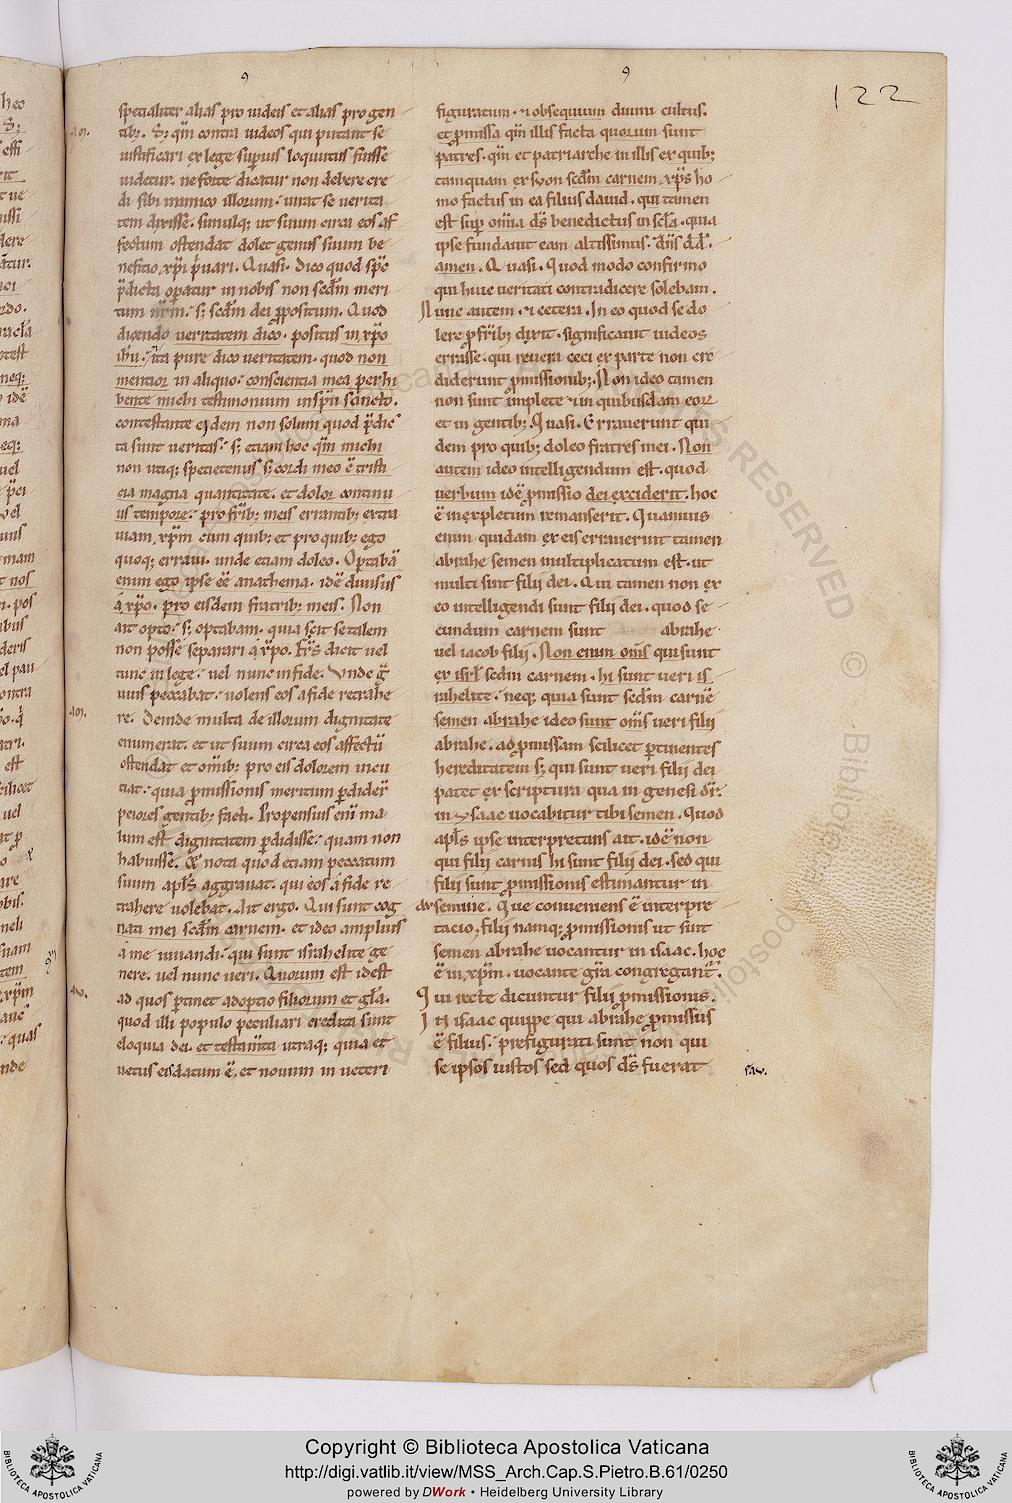 9 9
122
specialiter alias pro iudeis et alias pro gen
tib;. S; qm̄ contra iudeos qui putant se
iustificari ex lege superius loquutus fuisse
uidetur. ne forte dicatur non debere cre
di sibi inimico illorum. iurat se uerita
tem dixisse. simulq; ut suum circa eos af
fectum ostendat dolet genus suum be
neficio xp̄i p̄uari. Quasi. dico quod sp̄c
p̄dicta operatur in nobis non scdm̄ meri
tum nr̄m. s; scdm̄ dei propositum. Quod
dicendo ueritatem dico. positus in xp̄o
ih̄u. ita pure dico ueritatem. quod non
mentior in aliquo. conscientia mea perhi
bente michi testimonium in sp̄u sancto.
contestante eidem non solum quod p̄dic
ta sunt ueritas. s; etiam hoc qm̄ michi
non utiq; specietenus s; cordi meo ē tristi
cia magna quantitate. et dolor continu
us tempore. pro fr̄ib; meis errantib; extra
uiam xp̄m cum quib; et pro quib; ego
quoq; erraui. unde etiam doleo. Optabā
enim ego ipse eē anathema. idē diuisus
a xp̄o. pro eisdem fratrib; meis. Non
ait opto. s; optabam. quia scit se talem
non posse separari a xp̄o. Fr̄s dicit uel
tunc in lege. uel nunc in fide. Vnde ḡ
uius peccabat. uolens eos a fide retrahe
re. Deinde multa de illorum dignitate
enumerat. et ut suum circa eos affectū
ostendat et omib; pro eis dolorem incu
tiat. quia promissionis meritum perdider̄
peiores gentib; facti. Propensius enī ma
lum est dignitatem perdidisse. quam non
habuisse. Et nota quod etiam peccatum
suum apl̄s aggrauat. qui eos a fide re
trahere uolebat. Ait ergo. Qui sunt cog
nati mei scdm̄ carnem. et ideo amplius
a me iuuandi. qui sunt israhelite ge
nere. uel nunc ueri. Quorum est idest
ad quos pertinet adoptio filiorum et gl̄a.
quod illi populo peculiari credita sunt
eloquia dei. et testam̄ta utraq; quia et
uetus eis datum ē. et nouum in ueteri
figuratum. et obsequium diuini cultus.
et promissa qm̄ illis facta quorum sunt
patres. qm̄ et patriarche in illis ex quib;
tamquam ex syon scdm̄ carnem xp̄s ho
mo factus in ea filius dauid. qui tamen
est super omīa ds̄ benedictus in scl̄a. quia
ipse fundauit eam altissimus.
amen. Quasi. Quod modo confirmo
qui huic ueritati contradicere solebam.
Nunc autem. et cetera. In eo quod se do
lere pro fr̄ib; dixit. significauit iudeos
errasse. qui reuera ceci ex parte non cre
diderunt promissionib;. Non ideo tamen
non sunt implete et in quibusdam eorum
et in gentib;. Quasi. Errauerunt qui
dem pro quib; doleo fratres mei. Non
autem ideo intelligendum est. quod
uerbum idē promissio dei exciderit. hoc
ē inexpletum remanserit. Quamuis
enim quidam ex eis errauerunt tamen
abrahe semen multiplicatum est. ut
multi sint filii dei. Qui tamen non ex
eo intelligendi sunt filii dei. quod se
cundum carnem sunt abrahe
uel iacob filii. Non enim om̄s qui sunt
ex isrl̄ scdm̄ carnem. hi sunt ueri is
rahelite. neq; quia sunt scdm̄ carnē
semen abrahe ideo sunt om̄s ueri filii
abrahe. ad promissam scilicet pertinentes
hereditatem s; qui sunt ueri filii dei
patet ex scriptura qua in genesi dr̄.
in ysaac uocabitur tibi semen. Quod
apl̄s ipse interpretans ait. idē non
qui filii carnis hi sunt filii dei. sed qui
filii sunt promissionis estimantur in
semine. Que conueniens ē interpre
tacio. filii namq; promissionis ut sint
semen abrahe uocantur in isaac. hoc
ē in xp̄m. uocante gr̄a congregant̄.
Qui recte dicuntur filii promissionis.
Iti isaac quippe qui abrahe promissus
ē filius. prefigurati sunt non qui
se ipsos iustos sed quos ds̄ fuerat
Copyright © Biblioteca Apostolica Vaticana
http://digi.vatlib.it/view/MSS_Arch.Cap.S.Pietro.B.61/0250
powered by DWork • Heidelberg University Library
BIBLIOTECA APOSTOLICA VATICANA
BIBLIOTECA APOSTOLICA VATICANA